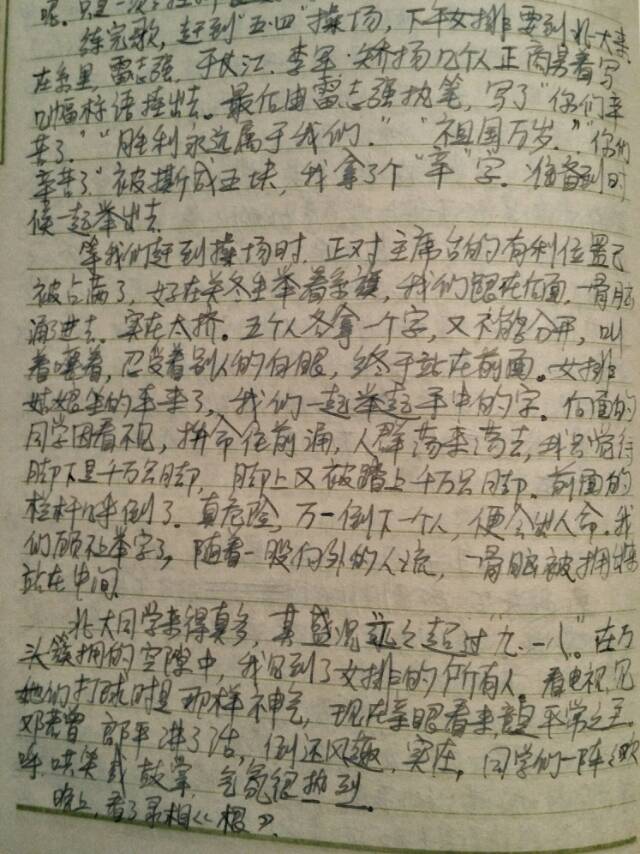 练完歌，赶到“五·四”操场，下午女排要到北大来。
在系里，雷志强、于长江、李军、矫扬几个人正商量着写
几幅标语捧出去。最后由雷志强执笔，写了“你们辛
苦了”“胜利永远属于我们”“祖国万岁”。“你们
辛苦了”被撕成五块，我拿了个“辛”字。准备到时
候一起举出去。
等我们赶到操场时，正对主席台的有利位置已
被占满了，好在关冬生举着系旗，我们跟在后面，一骨脑
涌进去。实在太挤。五个人各拿一个字，又不能分开，叫
着嚷着，忍受着别人的白眼，终于站在前面。女排
姑娘坐的车来了，我们一起举起手中的字。后面的
同学因看不见，拼命往前涌，人群荡来荡去，我只觉得
脚下是千万只脚，脚上又被踏上千万只脚。前面的
栏杆哗倒了。真危险，万一倒下一个人，便会出人命。我
们顾不上举字了，随着一股向外的人流，一骨脑被拥出来
站在中间。
北大同学来得真多，其盛况远远超过“九·一八”。在万
头簇拥的空隙中，我见到了女排的所有人。看电视，见
她们打球时是那样神气，现在亲眼看来，平常之至，
邓若曾、郎平讲了话，倒还风趣、实在，同学们一阵阵欢
呼、哄笑或鼓掌，气氛很热烈。
晚上，看了录相《根》。